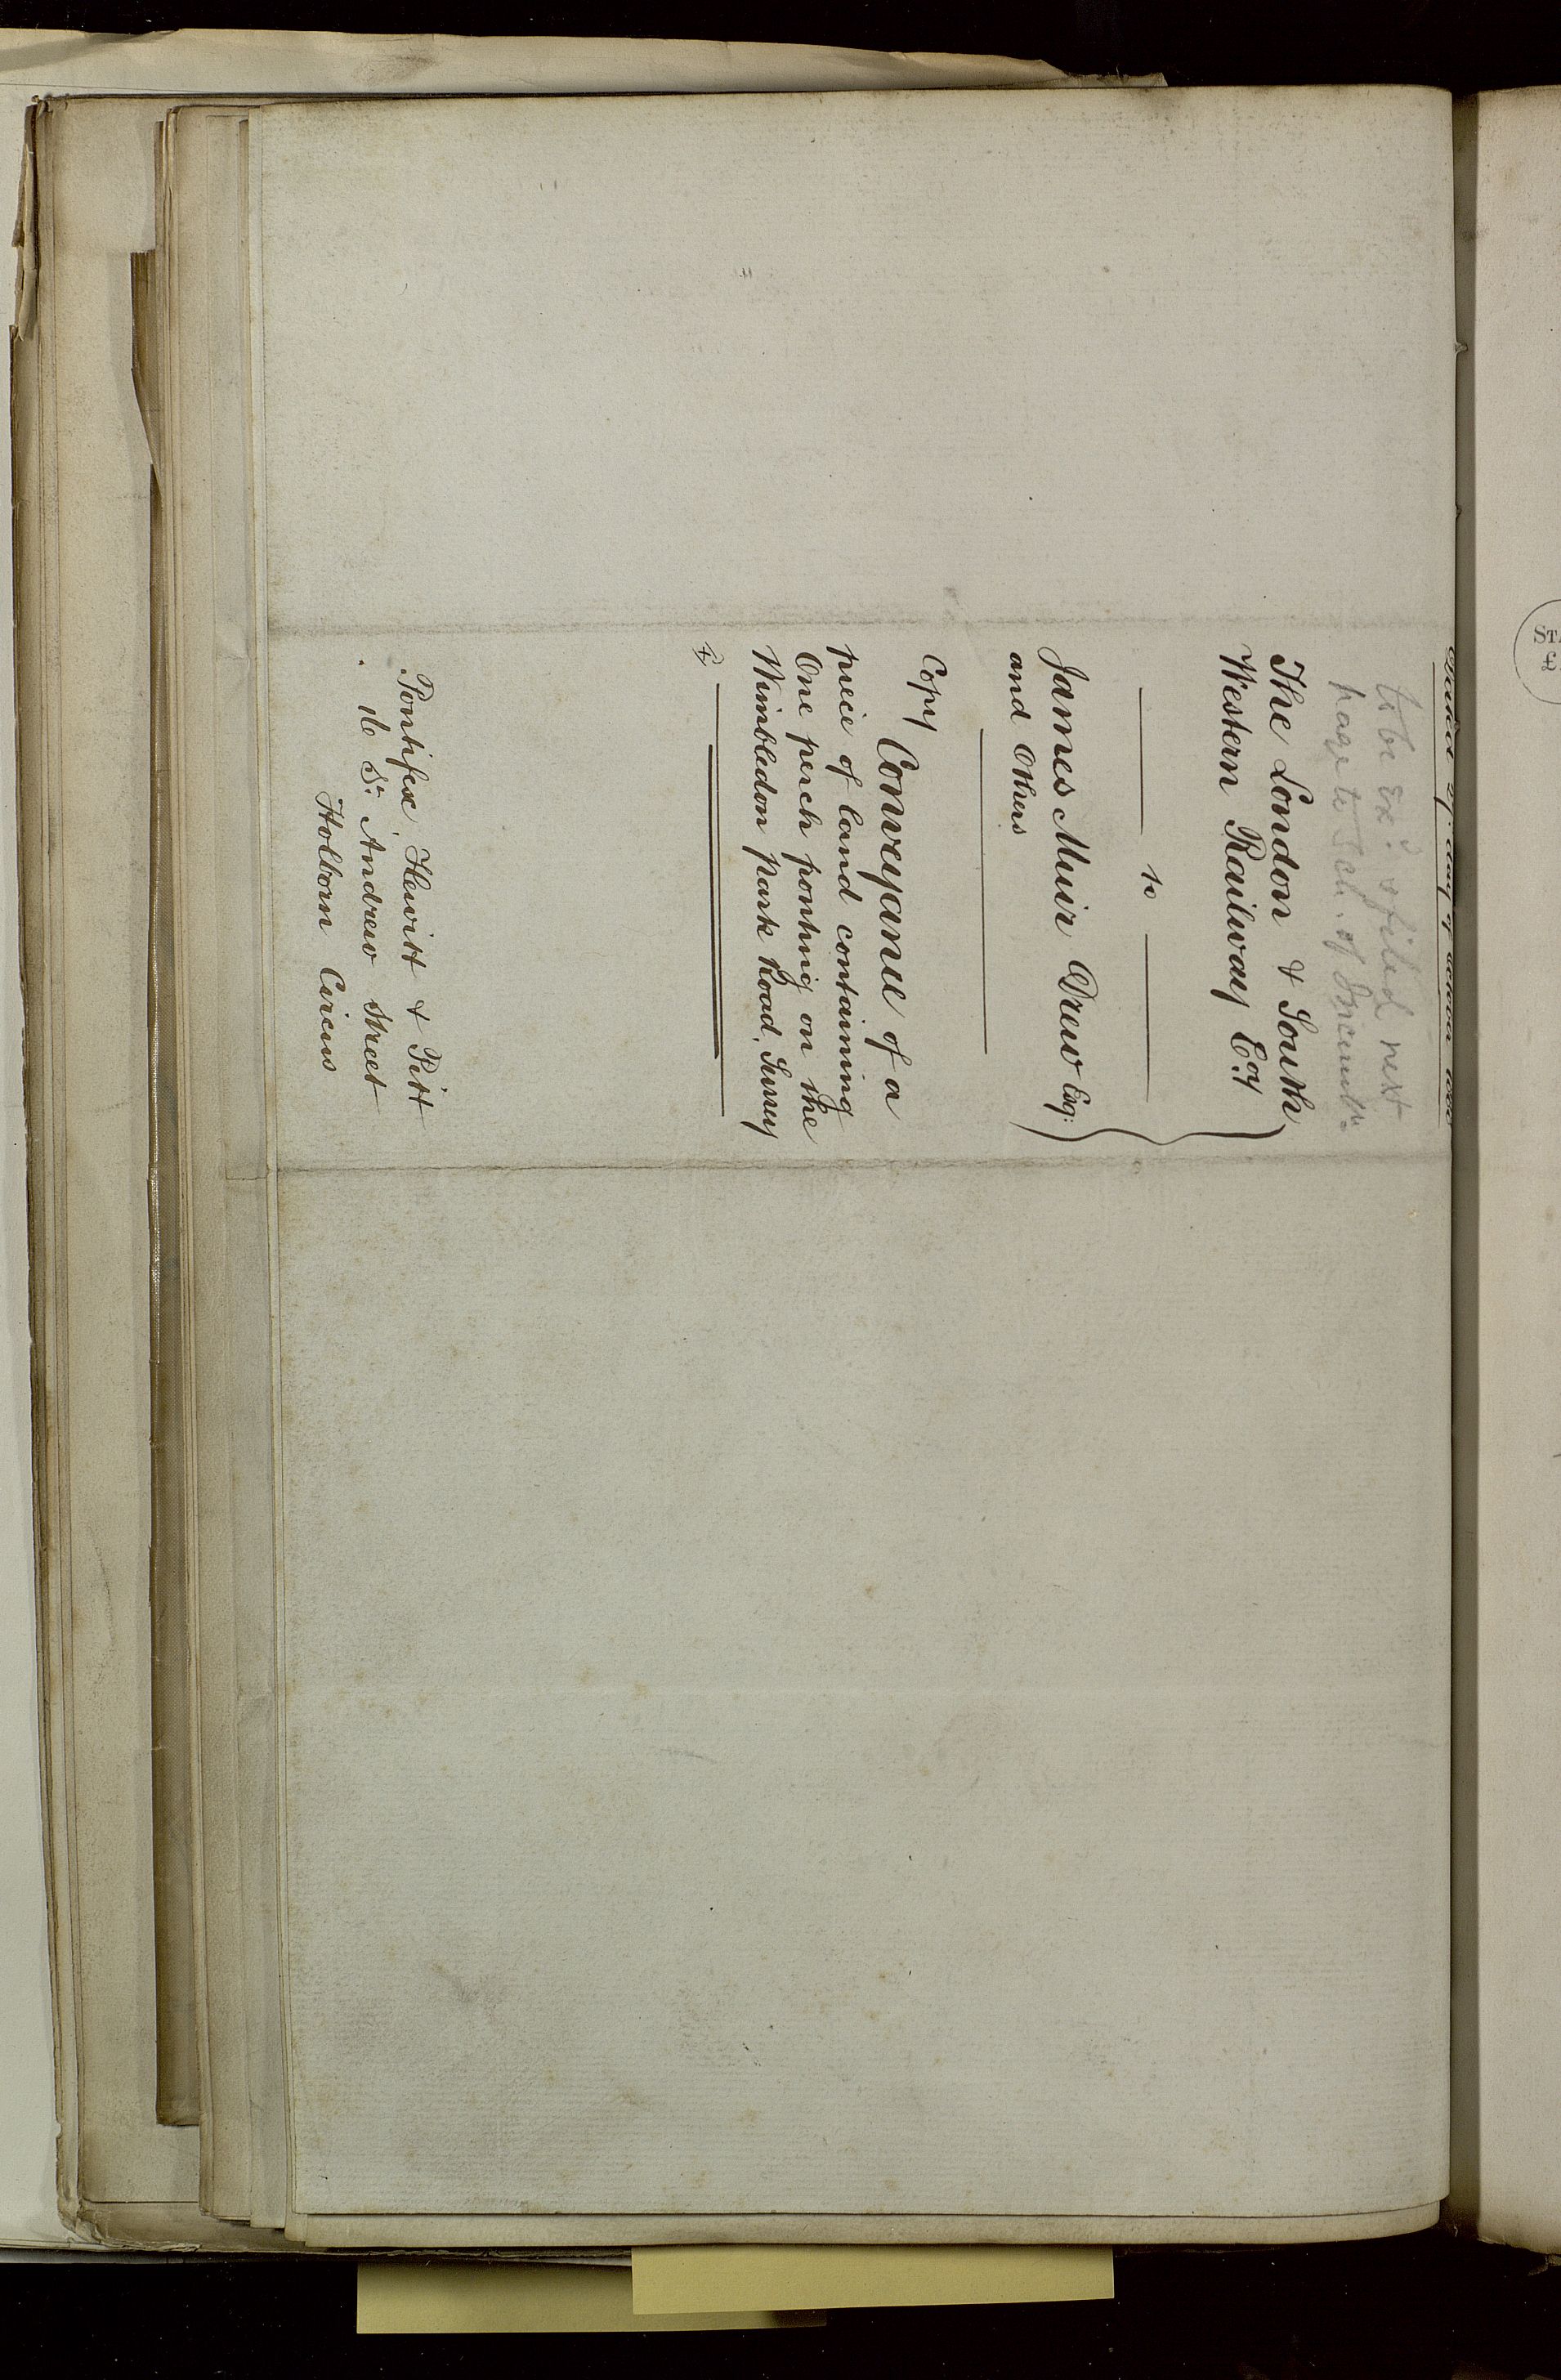 Dated 29. day of October
to be ex.d & filed next
page to Sch. of Incumbces
The London & South
Western Railway Coy
to
James Muir Drew Esq:
and Others
Copy
Conveyance of a
piece of land containing
One perch fronting on the
Wimbledon Park Road, Surrey
Pontifex Hewitt & Pitt
16 St. Andrew Street
Holborn Circus
STA
£